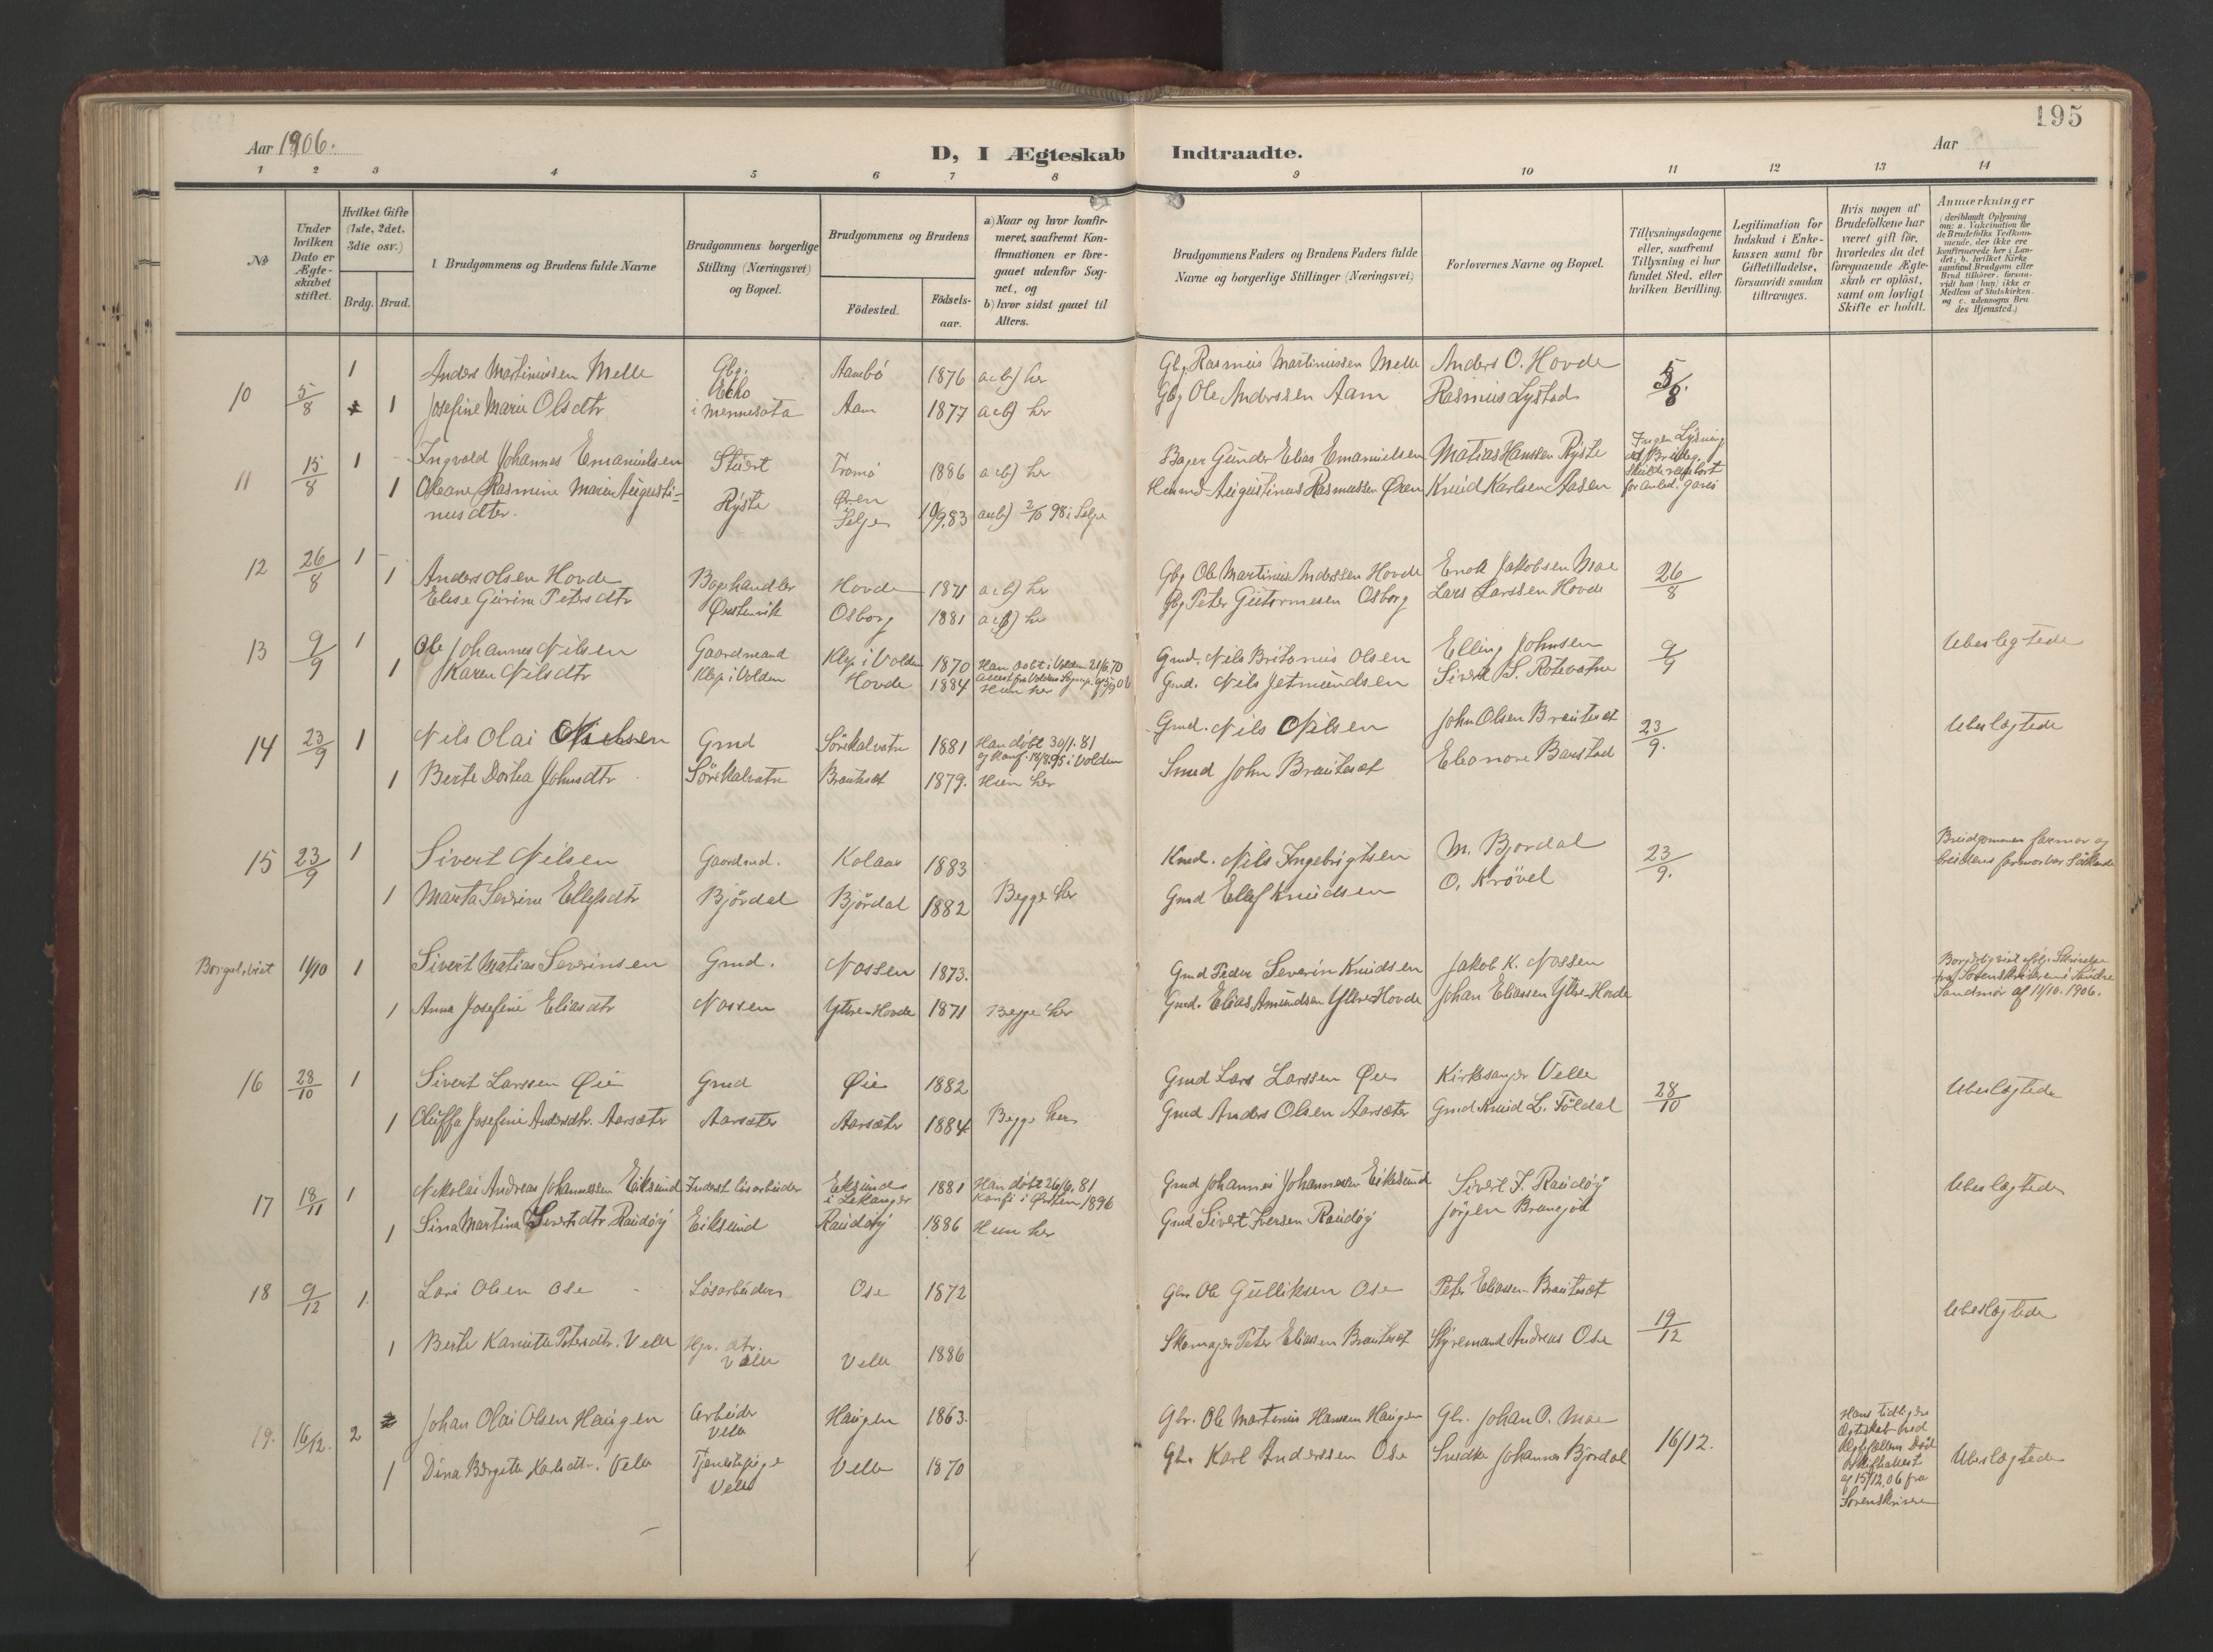 195
Aar 1906.
Aar
D, I Ægteskab Indtraadte.
1 2 3 4 5 6 7 8 9 10 11 12 13 14
No
Under hvilken Dato er Ægteskabet stiftet.
Hvilket Gifte (1ste, 2det, 3die osv.)
Brdg. Brud.
Brudgommens og Brudens fulde Navne
Brudgommens borgerlige Stilling (Næringsvei) og Bopæl.
Brudgommens og Brudens
Födested.
Födselsaar.
a) Naar og hvor konfirmeret, saafremt Konfirmationen er foregaaet udenfor Sognet, og
b) hvor sidst gaaet til Alters.
Brudgommens Faders og Brudens Faders fulde Navne og borgerlige Stillinger (Næringsvei)
Forlovernes Navne og Bopæl.
Tillysningsdagene eller, saafremt Tillysning ei har fundet Sted, efter hvilken Bevilling.
Legitimation for Indskud i Enkekassen samt for Giftetilladelse, forsaavidt saadan tiltrænges.
Hvis nogen af Brudefolkene har været gift för, hvorledes da det foregaaende Ægteskab er oplöst, samt om lovligt Skifte er holdt.
Anmærkninger
10 5/8 1 Anders Martinussen Melle Gbg. Aambö 1876 a&b) her Gbg Rasmus Martinussen Melle Anders O. Hovde 5/8.
1 Josefine Marie Olsdtr. Echo i Mennesota Aam 1877 a&b) her Gbg Ole Anderssen Aam Rasmus Lystad
11 15/8 1 Ingvald Johannes Emanuelsen Stuert Tromö 1886 a&b) her Bager Gunder Elias Emanuelsen Matias Hanssen Ryste Ingen Lysning
1 Oleane Rasmine Marie Augustinusdter. Ryste Øren Selje 10/9.83 a&b) 2/10 98 i Selje Augustinus Rasmussen Øren Knud Karlsen Aasen
12 26/8 1 Anders Olsen Hovde Boghandler Hovde 1871 a&b) her Gbg Ole Martinus Anderssen Hovde Enok Jakobsen Moe 26/8
1 Elise Gurine Petersdtr Ørstenvik Osborg 1881 a&b) her Gbg Peter Guttormesen Osborg Lars Larssen Hovde
13 9/9 1 Ole Johannes Nilsen Gaardmand Klep i Volden 1870 Han döbt i Volden 21/6.70 Gmd. Nils Britanius Olsen Elling Johnsen 9/9 Ubeslegtede
1 Karen Nilsdtr Klep i Volden Hovde 1884 Hun her Gmd. Nils Jetmundsen Sivert S. Rotevatne
14 23/9 1 Nils Olai Nielsen Gmd Sörekalvatn 1881 Han döbt 30/1.81 og konf. 18/8.95 i Volden Gmd. Nils Nilsen John Olsen Brautaset 23/9. Ubeslægtede
1 Berte Dortea Johnsdtr Sörekalvatn Brautaset 1879. Hun her Smed John Brautaset Eleonore Barstad
15 23/9 1 Sivert Nilsen Gaardmd. Kolaas 1883 Kmd. Nils Ingebrigtsen M. Bjordal 23/9. Brudgommen farmor og brudens farmor var Söskende
1 Marta Severine Ellefsdtr Björdal Björdal 1882 Begge her Gmd Ellef Knudsen O. Krövel
Borgerlviet 11/10 1 Sivert Matias Severinsen Gmd. Nossen 1873. Gmd Peder Severin Knudsen Jakob K. Nossen Borgerlig viet ifölge Skrivelse fra Sorenskriveren i Söndre Söndmör af 11/10.1906.
1 Anna Josefine Eliasdtr Nossen Yttre-Hovde 1871 Begge her Gmd. Elias Amundsen Yttre-Hovde Johan Eliassen Yttre-Hovde
16 28/10 1 Sivert Larssen Øie Gmd Øie 1882 Gmd Lars Larssen Øie Kirkesanger Velle 28/10 Ubeslægtede
1 Oluffa Josefine Andersdtr. Aarsæter Aarsæter Aarsæter 1884 Begge her Gmd Anders Olsen Aarsæter Gmd Knud L. Földal
17 18/11 1 Nikolai Andreas Johannessen Eiksund Inderst lösarbeider Eksund i Lekanger 1881 Han döbt 26/6.81 Konfi i Örsten 1896 Gmd Johannes Johannessen Eiksund Sivert I. Raudöy Ubeslægtede
1 Sina Martina Sivertsdtr Raudöy Eiksund Raudöy 1886 Hun her Gmd Sivert Iversen Raudöy Jörgen Brungot
18 9/12 1. Lars Olsen Ose Lösarbeider Ose 1872 Gbr. Ole Gulliksen Ose Peter Eliassen Brautaset 19/12 Ubeslægtede
1 Berte Kamilla Petersdtr. Velle Velle Velle 1886 Skomager Peter Eliassen Brautaset Styremand Andreas Ose
19. 16/12. 2 Johan Olai Olsen Haugen Arbeider Velle Haugen 1863. Gbr. Ole Martinus Hanssen Haugen Gbr. Johan O. Moe 16/12. Hans tidligere Ægteskab ved Ægtefællens Död af 15/12.06 fra Sorenskriveren Ubeslægtede
1 Dina Bergitte Karlsdtr. Velle Tjenestepige Velle Velle 1870 Gbr. Karl Anderssen Ose Snedker Johannes Bjordal